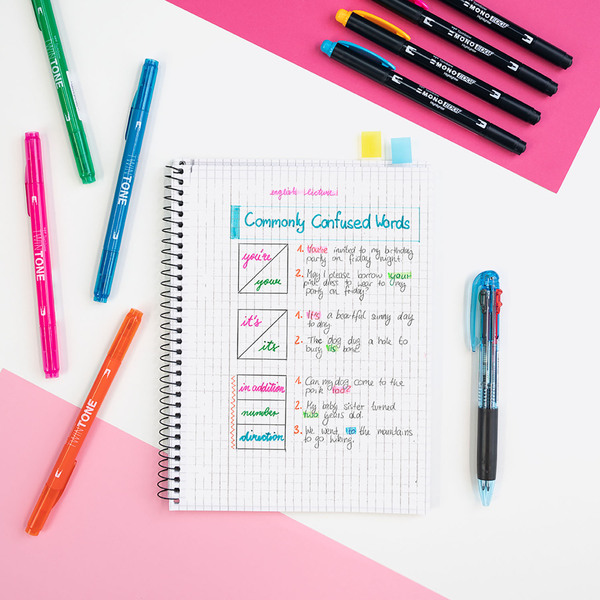 TWINTONE
TWINTONE
TWINTONE
TWINTONE
MONO edge
MONO edge
MONO edge
Highlighter
MONO edge
Highlighter
english lecture:
Commonly Confused Words
you're
your
1. You're invited to my birthday
party on friday night
2. May I please borrow your
pink dress to wear to my
party on friday
it's
its
1. It's a beautful sunny day
to day
2. The dog dug a hole to
bury its bone
in addition
number
direction
1. Can my dog come to the
park too?
2. My baby sister turned
two years old.
3. We went to the mountains
to go hiking.